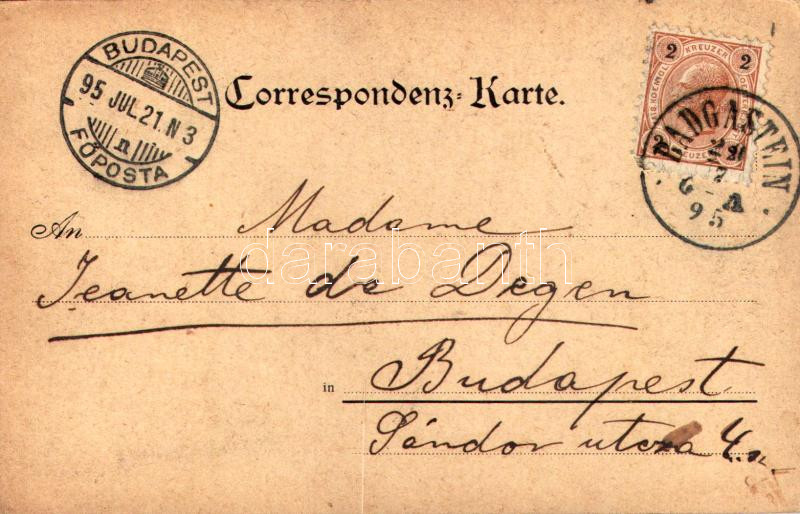 BUDAPEST
95 JUL.21.N3
FŐPOSTA
Correspondenz-Karte.
2 KREUZER 2
BADGASTEIN
7
95
An Madame
darabanth
Jeanette de Degen
in Budapest
Sándor utcza 4.